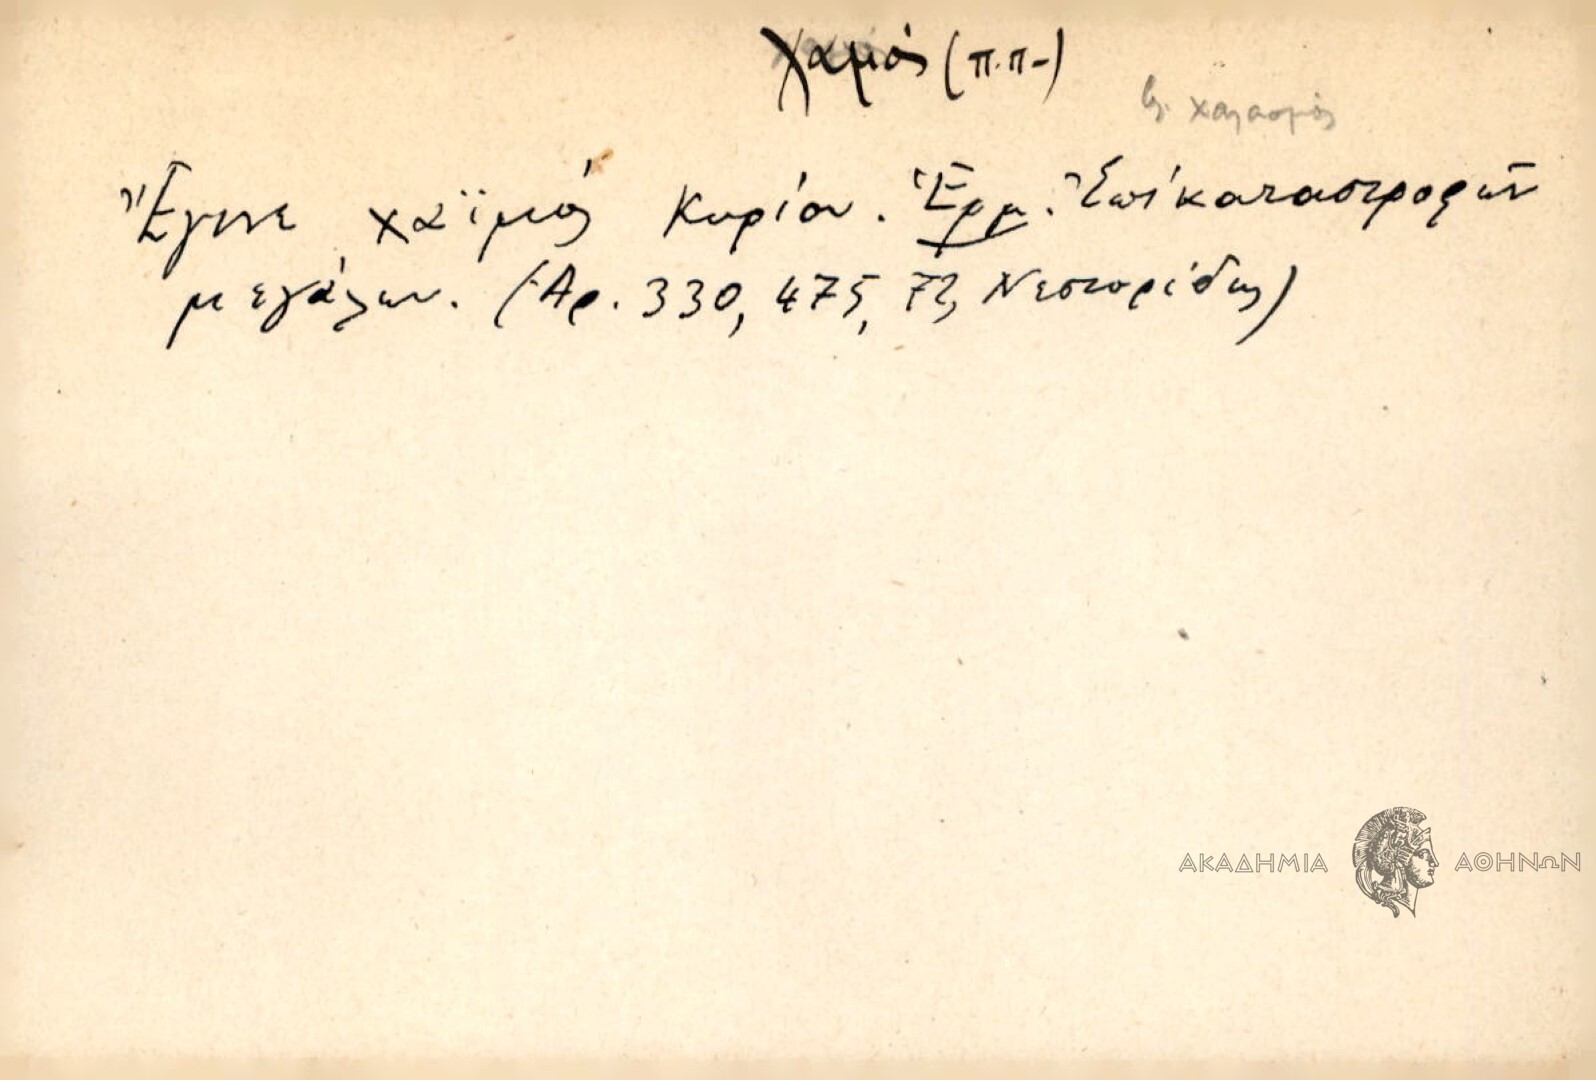 χαμός (π.π-)
βλ. χαλασμός
Ἔγινε χαϊμός Κυρίου. Ἑρμ. Ἐπὶ καταστροφῶν
μεγάλων. (Ἀρ. 330, 475, 72 Νεστορίδης)
ΑΚΑΔΗΜΙΑ ΑΘΗΝΩΝ